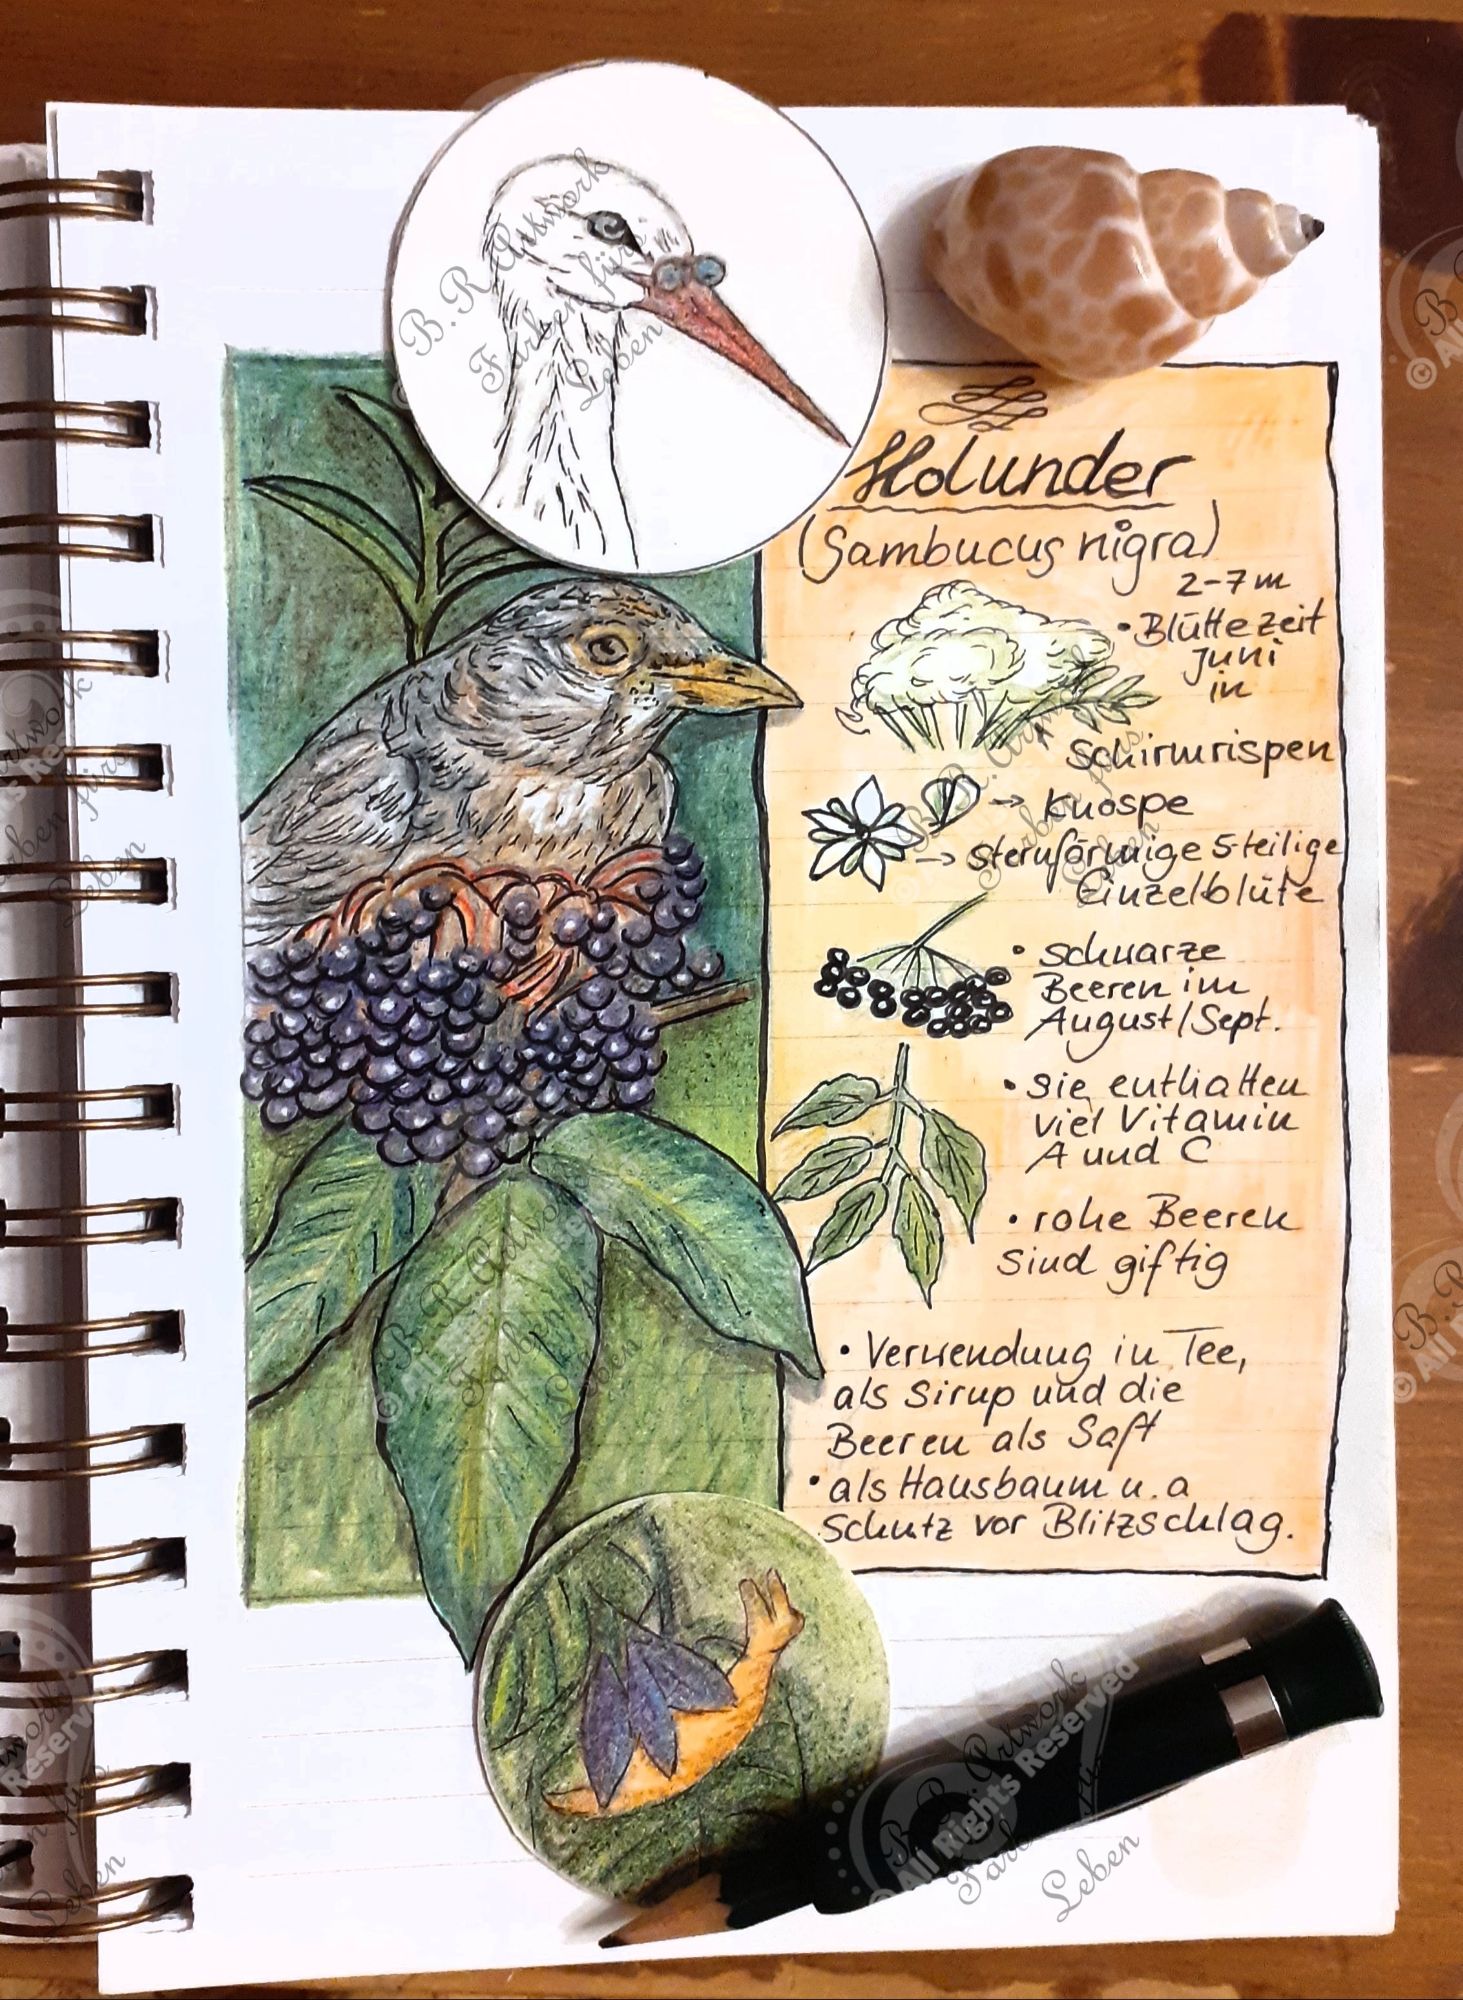 Holunder
(Sambucus nigra)
2-7 m
• Blüttezeit
Juni
in
Schirmrispen
→ Knospe
→ sternförmige 5-teilige
Einzelblüte
• schwarze
Beeren im
August/Sept.
• sie enthalten
viel Vitamin
A und C
• rohe Beeren
sind giftig
• Verwendung in Tee,
als Sirup und die
Beeren als Saft
• als Hausbaum u.a
Schutz vor Blitzschlag.
B.R.Artwork
Farben fürs
Leben
© All Rights Reserved